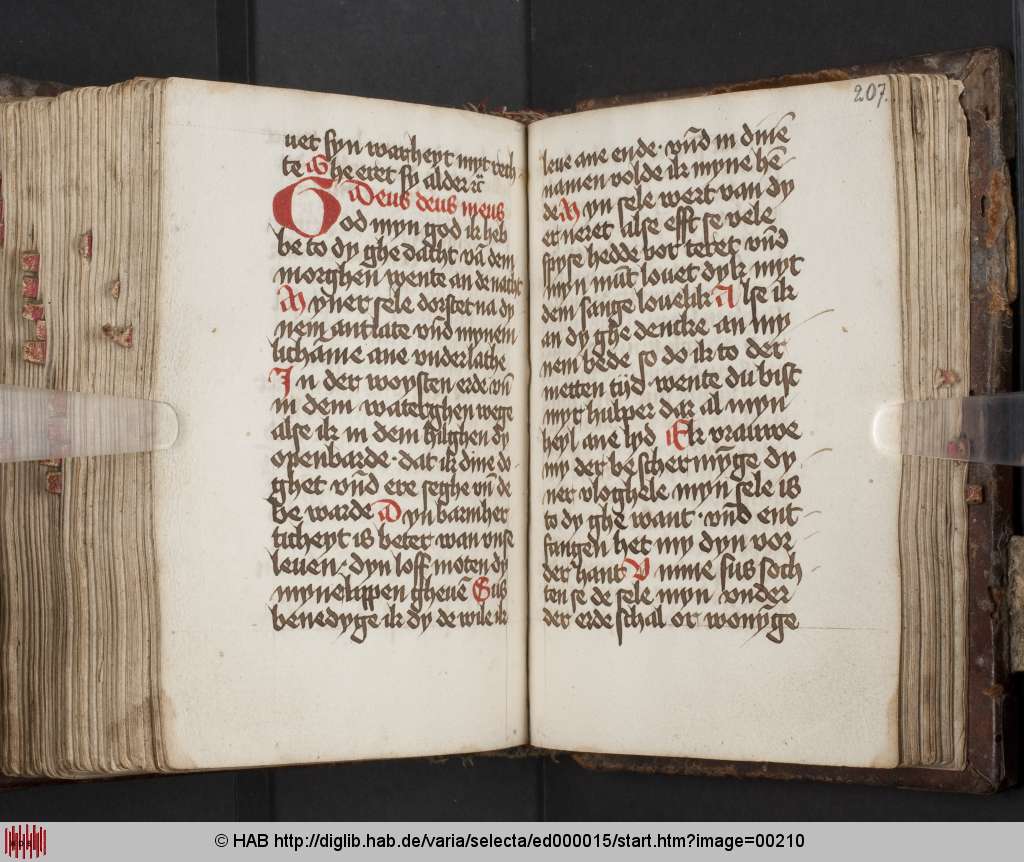 uet syn warheyt myt rech
te is he eret sy alder ꝛc̄
Deus deus meus
God myn god ik heb
be to dy ghe dacht vā dem
morghen wente an de nacht
Myner sele dorstet na dy
nem antlate vn̄d mynem
lichāme ane vnderlathe
In der woysten erde vn̄
in dem waterghen wege
alse ik in dem hilghen dy
openbarde · dat ik dine de
ghet vn̄d ere seghe vn̄ de
be warde Dyn barmher
ticheyt is beter wan vnse
leuen / dyn loff moten dy
myne lippen gheuē Sus
benedyge ik dy de wile ik
207.
leue ane ende · vn̄d in dinē
namen volde ik myne hēn
de Myn sele wert van dy
er neret alse efft se vele
spyse hedde vor teret vn̄d
myn mūt louet dyk myt
dem sange louelik Alse ik
an dy ghe dencke an my
nem bede so do ik to der
metten tijd · wente du bist
myt hulper dar al myn
heyl ane lyd Ek vrauwe
my der be schermȳge dy
ner vloghele myn sele is
to dy ghe want · vn̄d ent
fangen het my dyn vor
der hant Vmme sus soch
ten se de sele myn vnder
der erde schal er wonȳge
© HAB http://diglib.hab.de/varia/selecta/ed000015/start.htm?image=00210